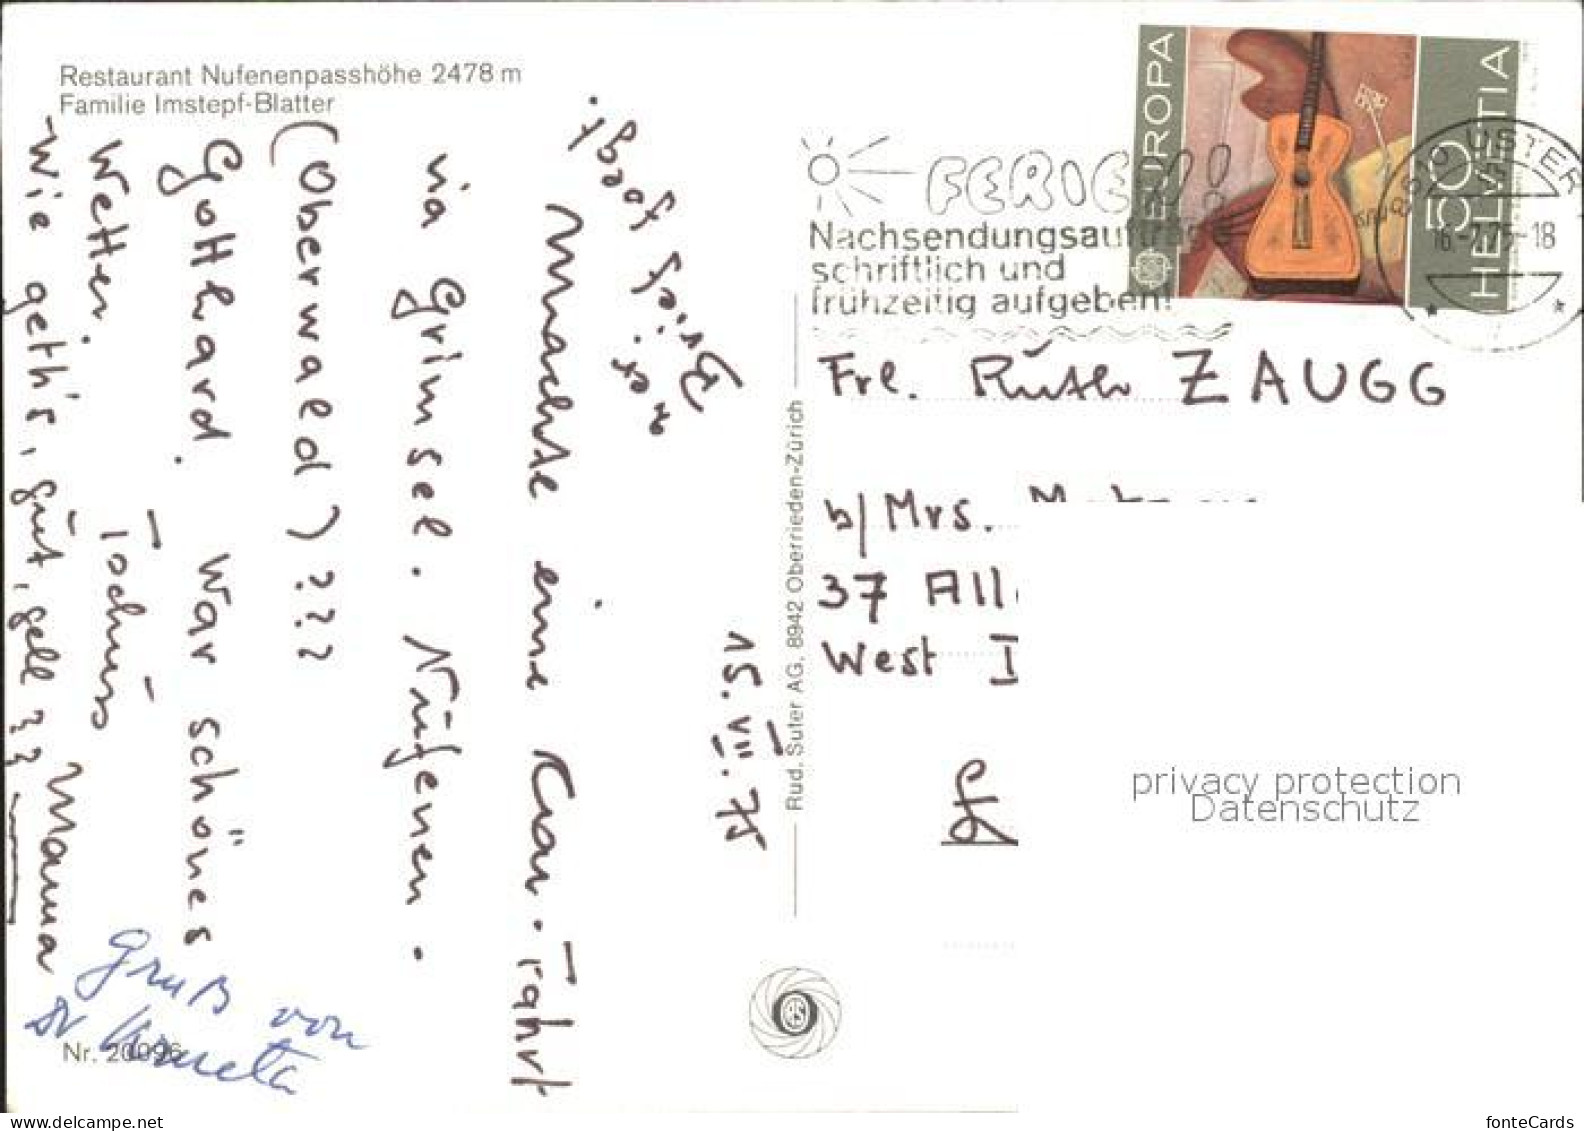 Restaurant Nufenenpasshöhe 2478 m
Familie Imstepf-Blatter
15. VII. 75
Brief folgt.
machte eine Car-Fahrt
via Grimsel. Nüfenen.
(Oberwald) ???
Gotthard. War schönes
Wetter.
Wie geth's, guet, gell??
Mama
Gruß von
Nr. 20096
Rud. Suter AG, 8942 Oberrieden-Zürich
FERIEN!
Nachsendungsaufträge
schriftlich und
frühzeitig aufgeben!
EUROPA
50
HELVETIA
8610 USTER
16-7.75-18
Frl. Ruth ZAUGG
b/Mrs.
37 All
West I
privacy protection
Datenschutz
www.delcampe.net
fonteCards